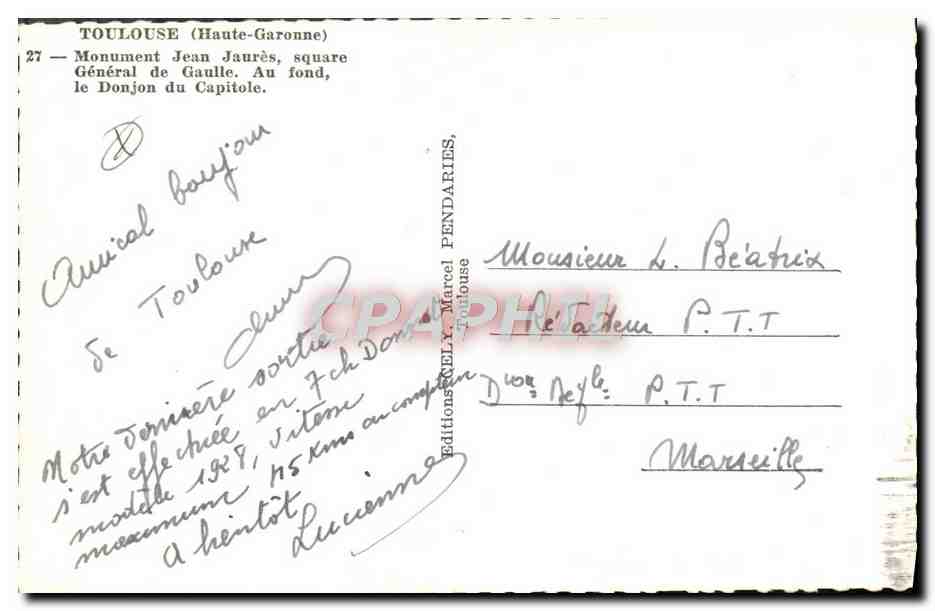 TOULOUSE (Haute-Garonne)
27 — Monument Jean Jaurès, square
Général de Gaulle. Au fond,
le Donjon du Capitole.
Amical bonjour
de Toulouse
Notre dernière sortie
s'est effectuée en 7 ch
modèle 1928, vitesse
maximum 45 Kms au compteur
A bientôt
Lucienne
Editions CELY, Marcel PENDARIES,
Toulouse
CPAPHIL
Monsieur L. Béatrix
Rédacteur P.T.T
Dion P.T.T
Marseille